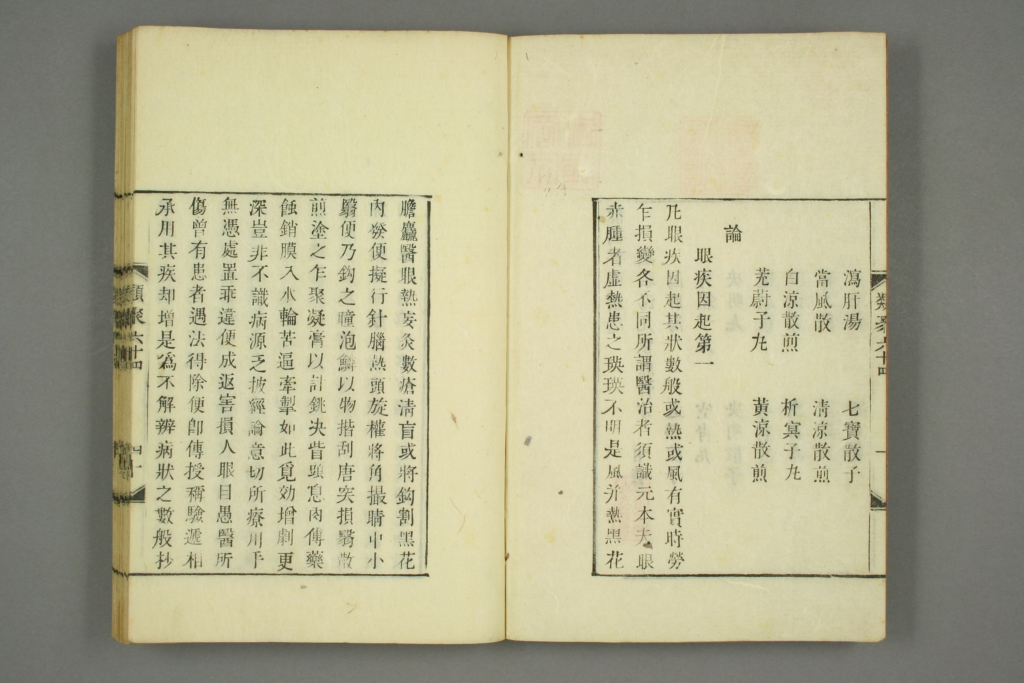 瀉肝湯 七寶散子
當風散 淸涼散煎
白涼散煎 析蓂子丸
茺蔚子丸 黃涼散煎
論
眼疾因起第一
凡眼疾因起其狀數般或熱或風有實時勞
乍損變各不同所謂醫治者須識元本夫眼
赤腫者虛熱患之瑛瑛不明是風幷熱黑花
膽麤醫眼熱妄灸數瘡淸盲或將鈎割黑花
內瘀便擬行針腦熱頭旋權將角撮睛中小
翳便乃鈎之瞳泡鱗以物揩刮唐突損翳散
煎塗之乍聚凝膏以計銚決眥頭息肉傳藥
蝕銷膜入水輪苦逼牽掣如此覓効增劇更
深豈非不識病源乏披經論意切所療用手
無憑處置乖違便成返害損人眼目愚醫所
傷曾有患者遇法得除便卽傳授稱驗遞相
承用其疾却增是爲不解辨病狀之數般抄
類聚六十四
一
類聚六十四
四十一